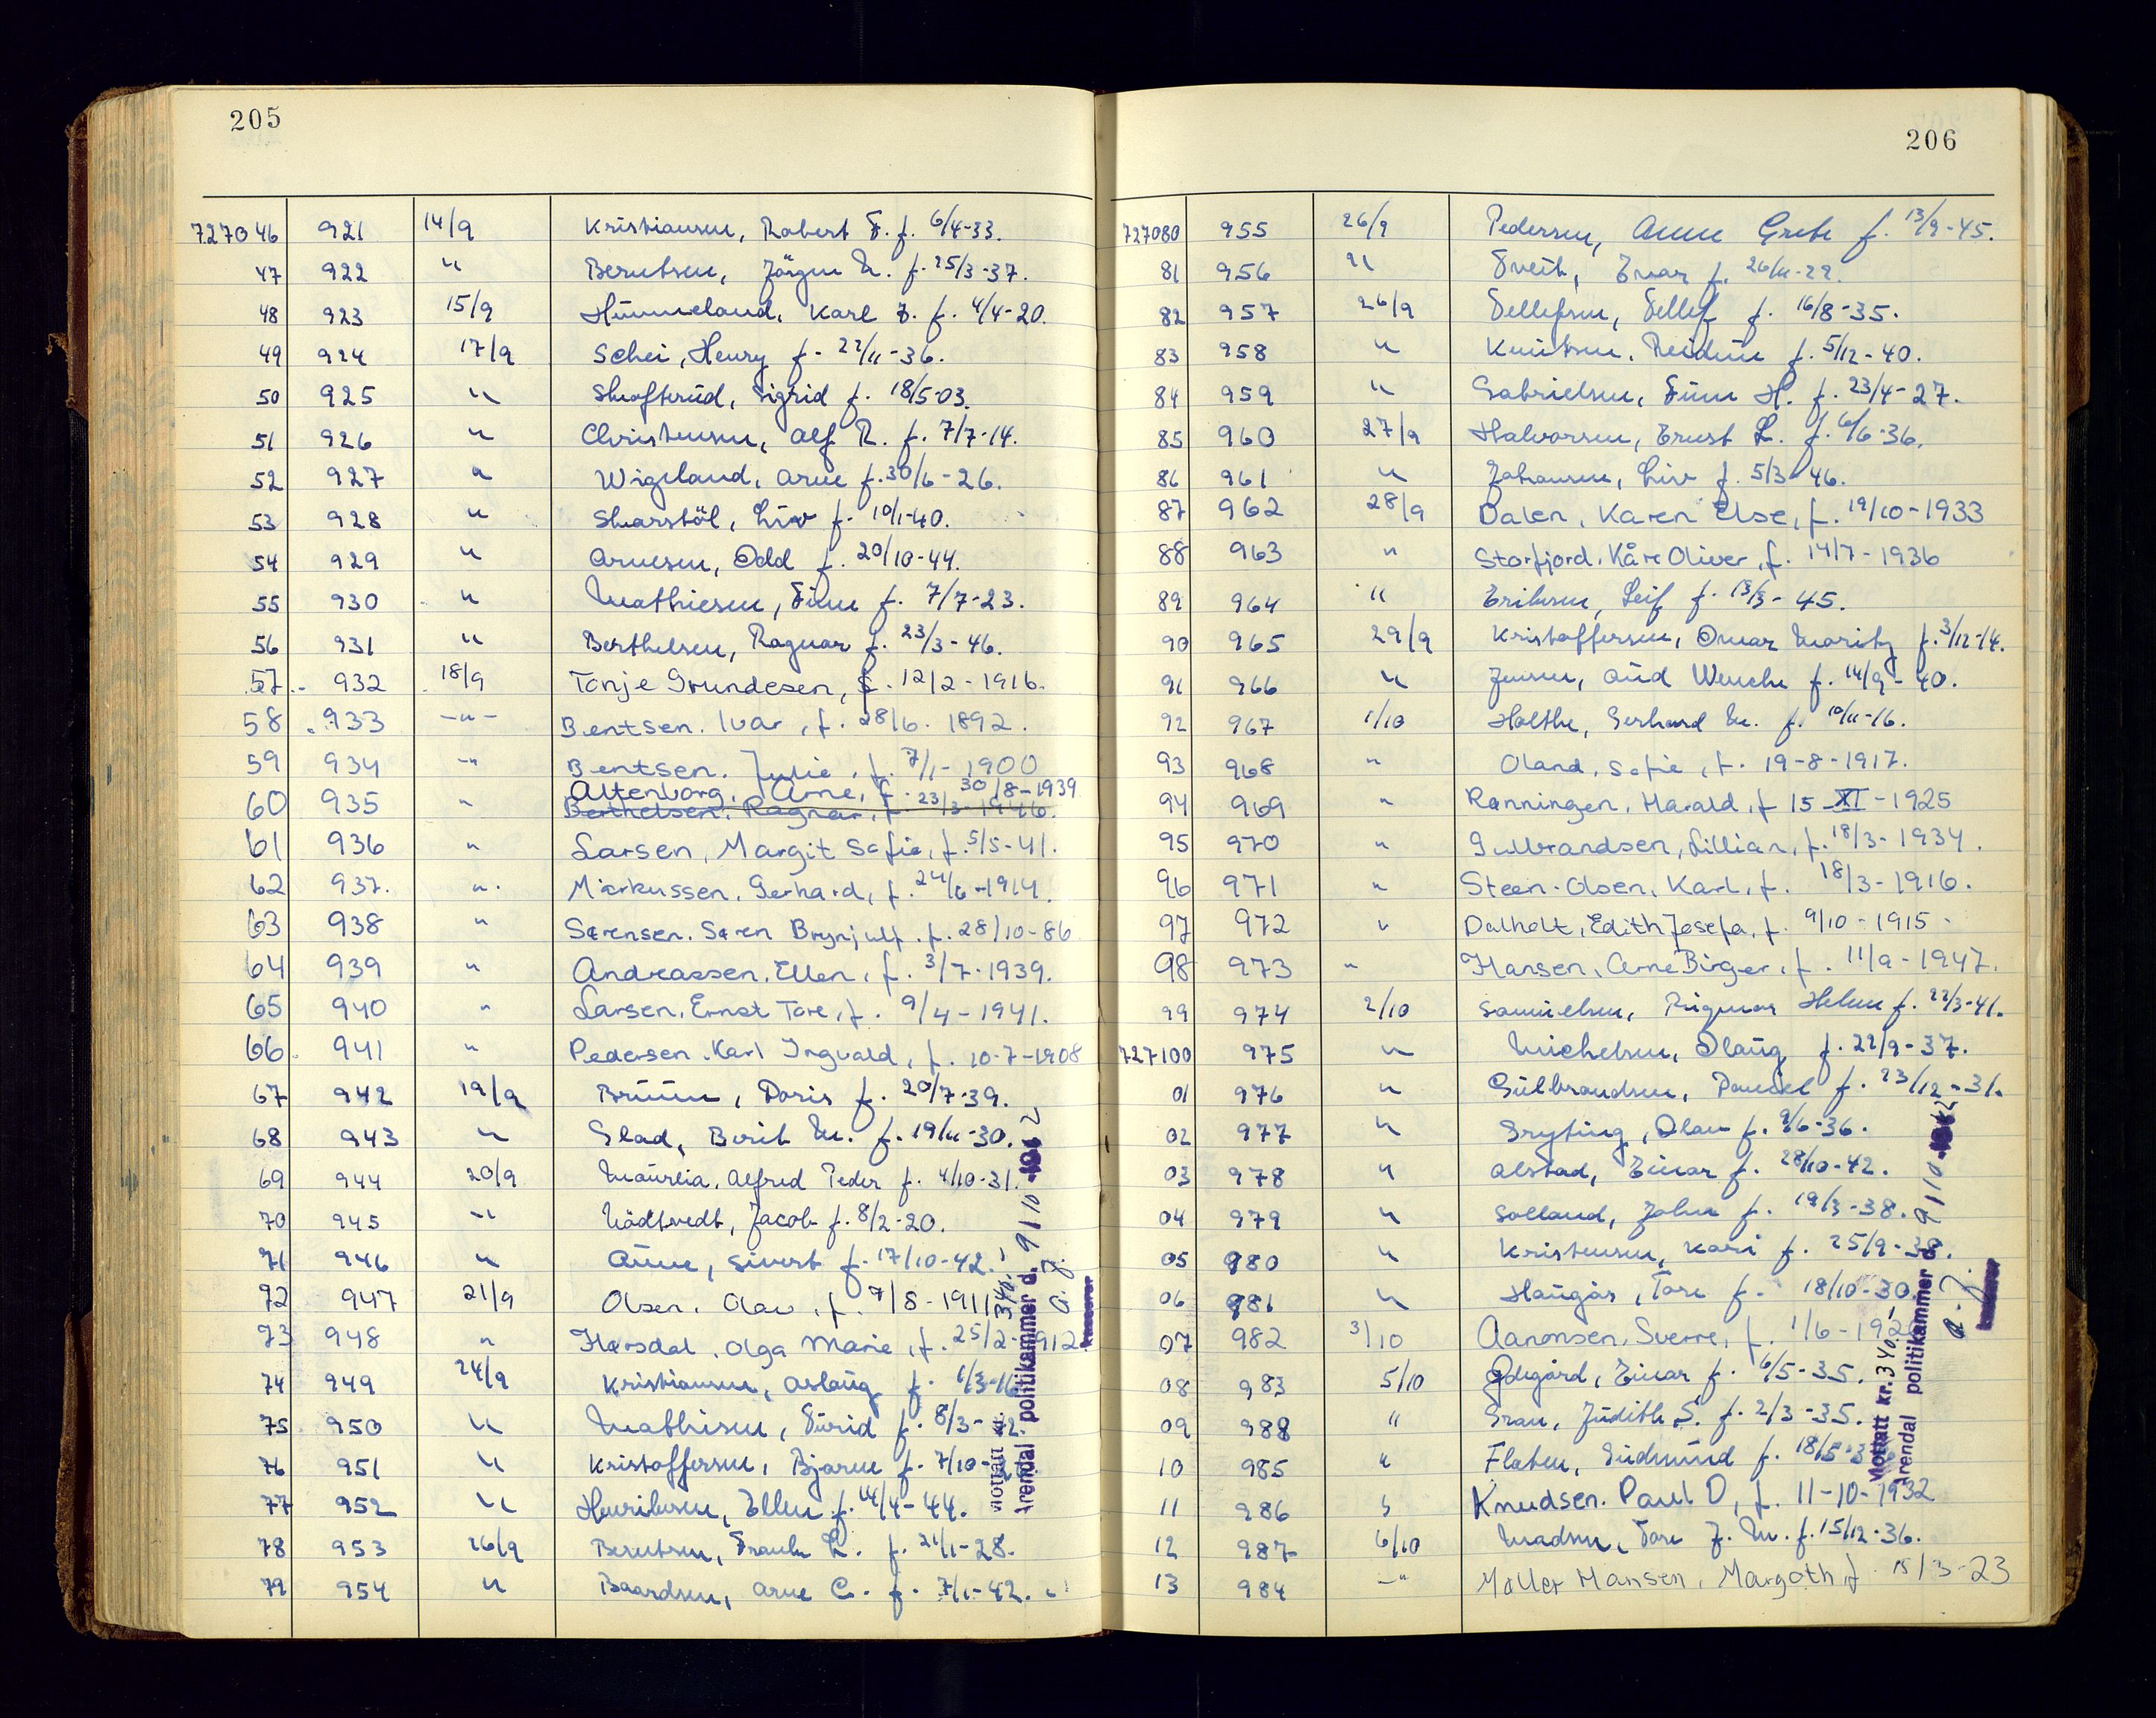 205
727046 921 14/9 Kristiansen, Robert F. f. 6/4-33.
47 922 " Berntsen, Jörgen M. f. 25/3-37.
48 923 15/9 Hummeland, Karl J. f. 4/4-20.
49 924 17/9 Schei, Henry f. 22/11-36.
50 925 " Skofterud, Sigrid f. 18/5-03.
51 926 " Christensen, Alf R. f. 7/7-14.
52 927 " Wigeland, Arne f. 30/6-26.
53 928 " Skarstöl, Liv f. 10/1-40.
54 929 " Arnesen, Odd f. 20/10-44.
55 930 " Mathiesen, Finn f. 7/7-23.
56 931 " Berthelsen, Ragnar f. 23/3-46.
57 932 18/9 Tonje Grundesen, f. 12/2-1916.
58 933 -"- Bentsen. Ivar, f. 28/6. 1892.
59 934 -" Bentsen. Julie, f. 7/1-1900
Altenborg, Arne, f. 30/8-1939
60 935 " Berthelsen. Ragnar, f. 23/3-1946.
61 936 " Larsen, Margit Sofie, f. 5/5-41.
62 937. " Markussen. Gerhard, f. 24/6-1914.
63 938 " Sørensen. Søren Brynjulf. f. 28/10-86
64 939 " Andreassen. Ellen, f. 3/7-1939.
65 940 " Larsen. Ernst Tore, f. 9/4-1941.
66. 941 " Pedersen. Karl Ingvald, f. 10-7-1908
67 942 19/9 Bruun, Doris f. 20/7-39.
68 943 " Glad, Berit M. f. 19/11-30.
69 944 20/9 Maurlia, Alfred Peder f. 4/10-31.
70 945 " Nödtvedt, Jacob f. 8/2-20.
71 946 " Aune, Sivert f. 17/10-42.
72 947 21/9 Olsen. Olav, f. 7/8-1911
73 948 " Harsdal. Olga Marie, f. 25/2-1912
74 949 24/9 Kristiansen, Aslaug f. 1/3-16
75 950 " Mathisen, Turid f. 8/3-
76 951 " Kristoffersen, Bjarne f. 7/10-
77 952 " Henriksen, Ellen f. 14/4-44.
78 953 26/9 Berntsen, Frank L. f. 21/1-28.
79 954 " Baardsen, Arne C. f. 7/1-42.
Mottatt kr. 340,
Arendal politikammer d. 9/10 1962
kasserer
206
727080 955 26/9 Pedersen, Anne Grete f. 13/9-45.
81 956 " Tveit, Ivar f. 26/11-22.
82 957 26/9 Tellefsen, Tellef f. 16/8-35.
83 958 " Knutsen, Reidun f. 5/12-40.
84 959 " Gabrielsen, Finn H. f. 23/4-27.
85 960 27/9 Halvorsen, Ernst L. f. 6/6-36.
86 961 " Johansen, Liv f. 5/3-46.
87 962 28/9 Dalen, Karen Else, f. 19/10-1933
88 963 " Storfjord. Kåre Oliver, f. 14/7-1936
89 964 " Eriksen, Leif f. 13/3-45.
90 965 29/9 Kristoffersen, Omar Moritz f. 3/12-14.
91 966 " Jensen, Aud Wenche f. 14/9-40.
92 967 1/10 Holthe, Gerhard M. f. 10/11-16.
93 968 " Oland. Sofie, f. 19-8-1917.
94 969 " Rønningen, Harald, f 15-XI-1925
95 970 " Gulbrandsen, Lillian, f. 18/3-1934.
96 971 " Steen-Olsen, Karl, f. 18/3-1916.
97 972 " Dalholt, Edith Josefa, f. 9/10-1915-
98 973 " Hansen, Arne Birger, f. 11/9-1947.
99 974 2/10 Samuelsen, Rigmor Helene f. 22/3-41.
727100 975 " Michelsen, Olaug f. 22/9-37.
01 976 " Gulbrandsen, Daniel f. 23/12-31.
02 977 " Gryting, Olav f. 9/6-36.
03 978 " Alstad, Einar f. 28/10-42.
04 979 " Solland, John f. 19/3-38.
05 980 " Kristensen, Kari f. 25/9-38.
06 981 " Haugås, Tore f. 18/10-30
07 982 3/10 Aanonsen. Sverre, f. 1/6-192
08 983 5/10 Ødegård, Einar f. 6/5-35.
09 988 " Grau, Judith S. f. 2/3-35.
10 985 " Flaten, Gudmund f. 18/5-3
11 986 " Knudsen. Paul O, f. 11-10-1932
12 987 6/10 Madsen, Tore J. M. f. 15/12-36.
13 984 -" Møller Hansen, Margoth f 15/3-23
Mottatt kr. 340,
Arendal politikammer d. 9/10 1962
kasserer